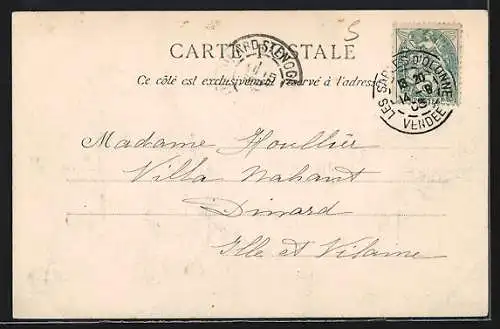 5
CARTE POSTALE
Ce côté est exclusivement réservé à l'adresse
DINARD ST ENOGAT
LES SABLES D'OLONNE
VENDEE
Madame Houllier
Villa Nahant
Dinard
Ille et Vilaine